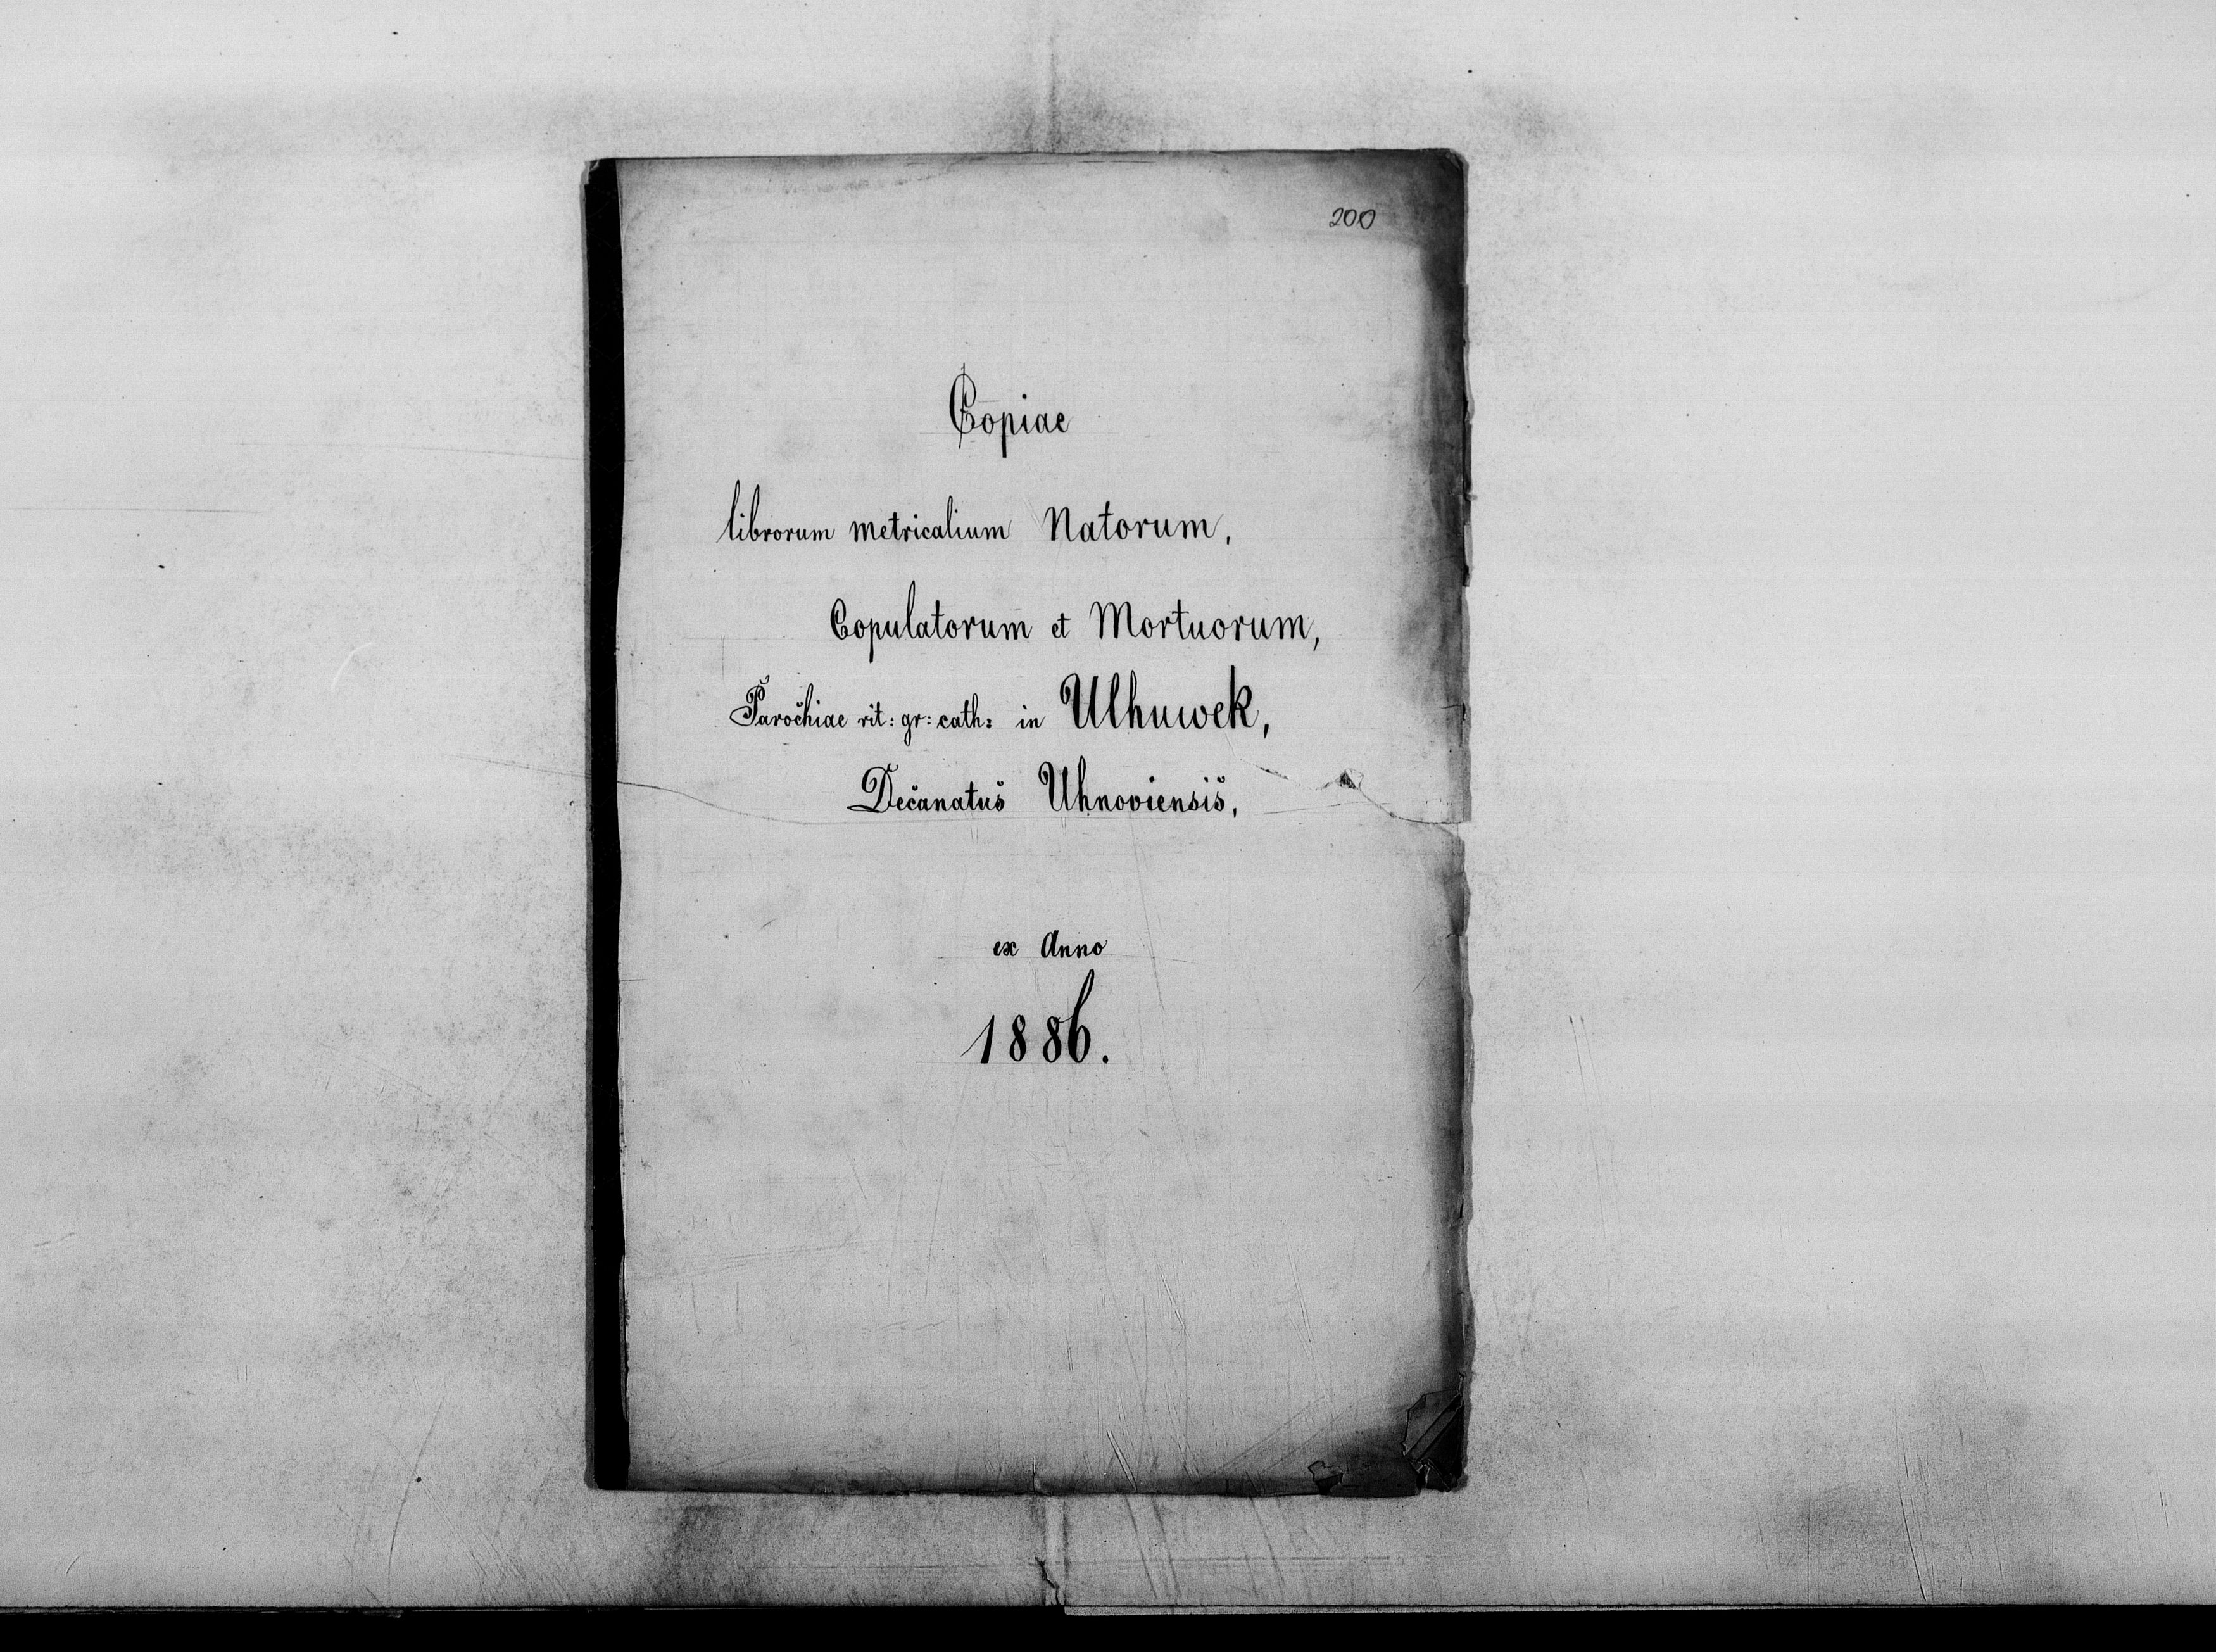 200
Copiae
librorum metricalium Natorum,
Copulatorum et Mortuorum,
Parochiae rit: gr: cath: in Ulhuwek,
Decanatus Uhnoviensis,
ex Anno
1886.